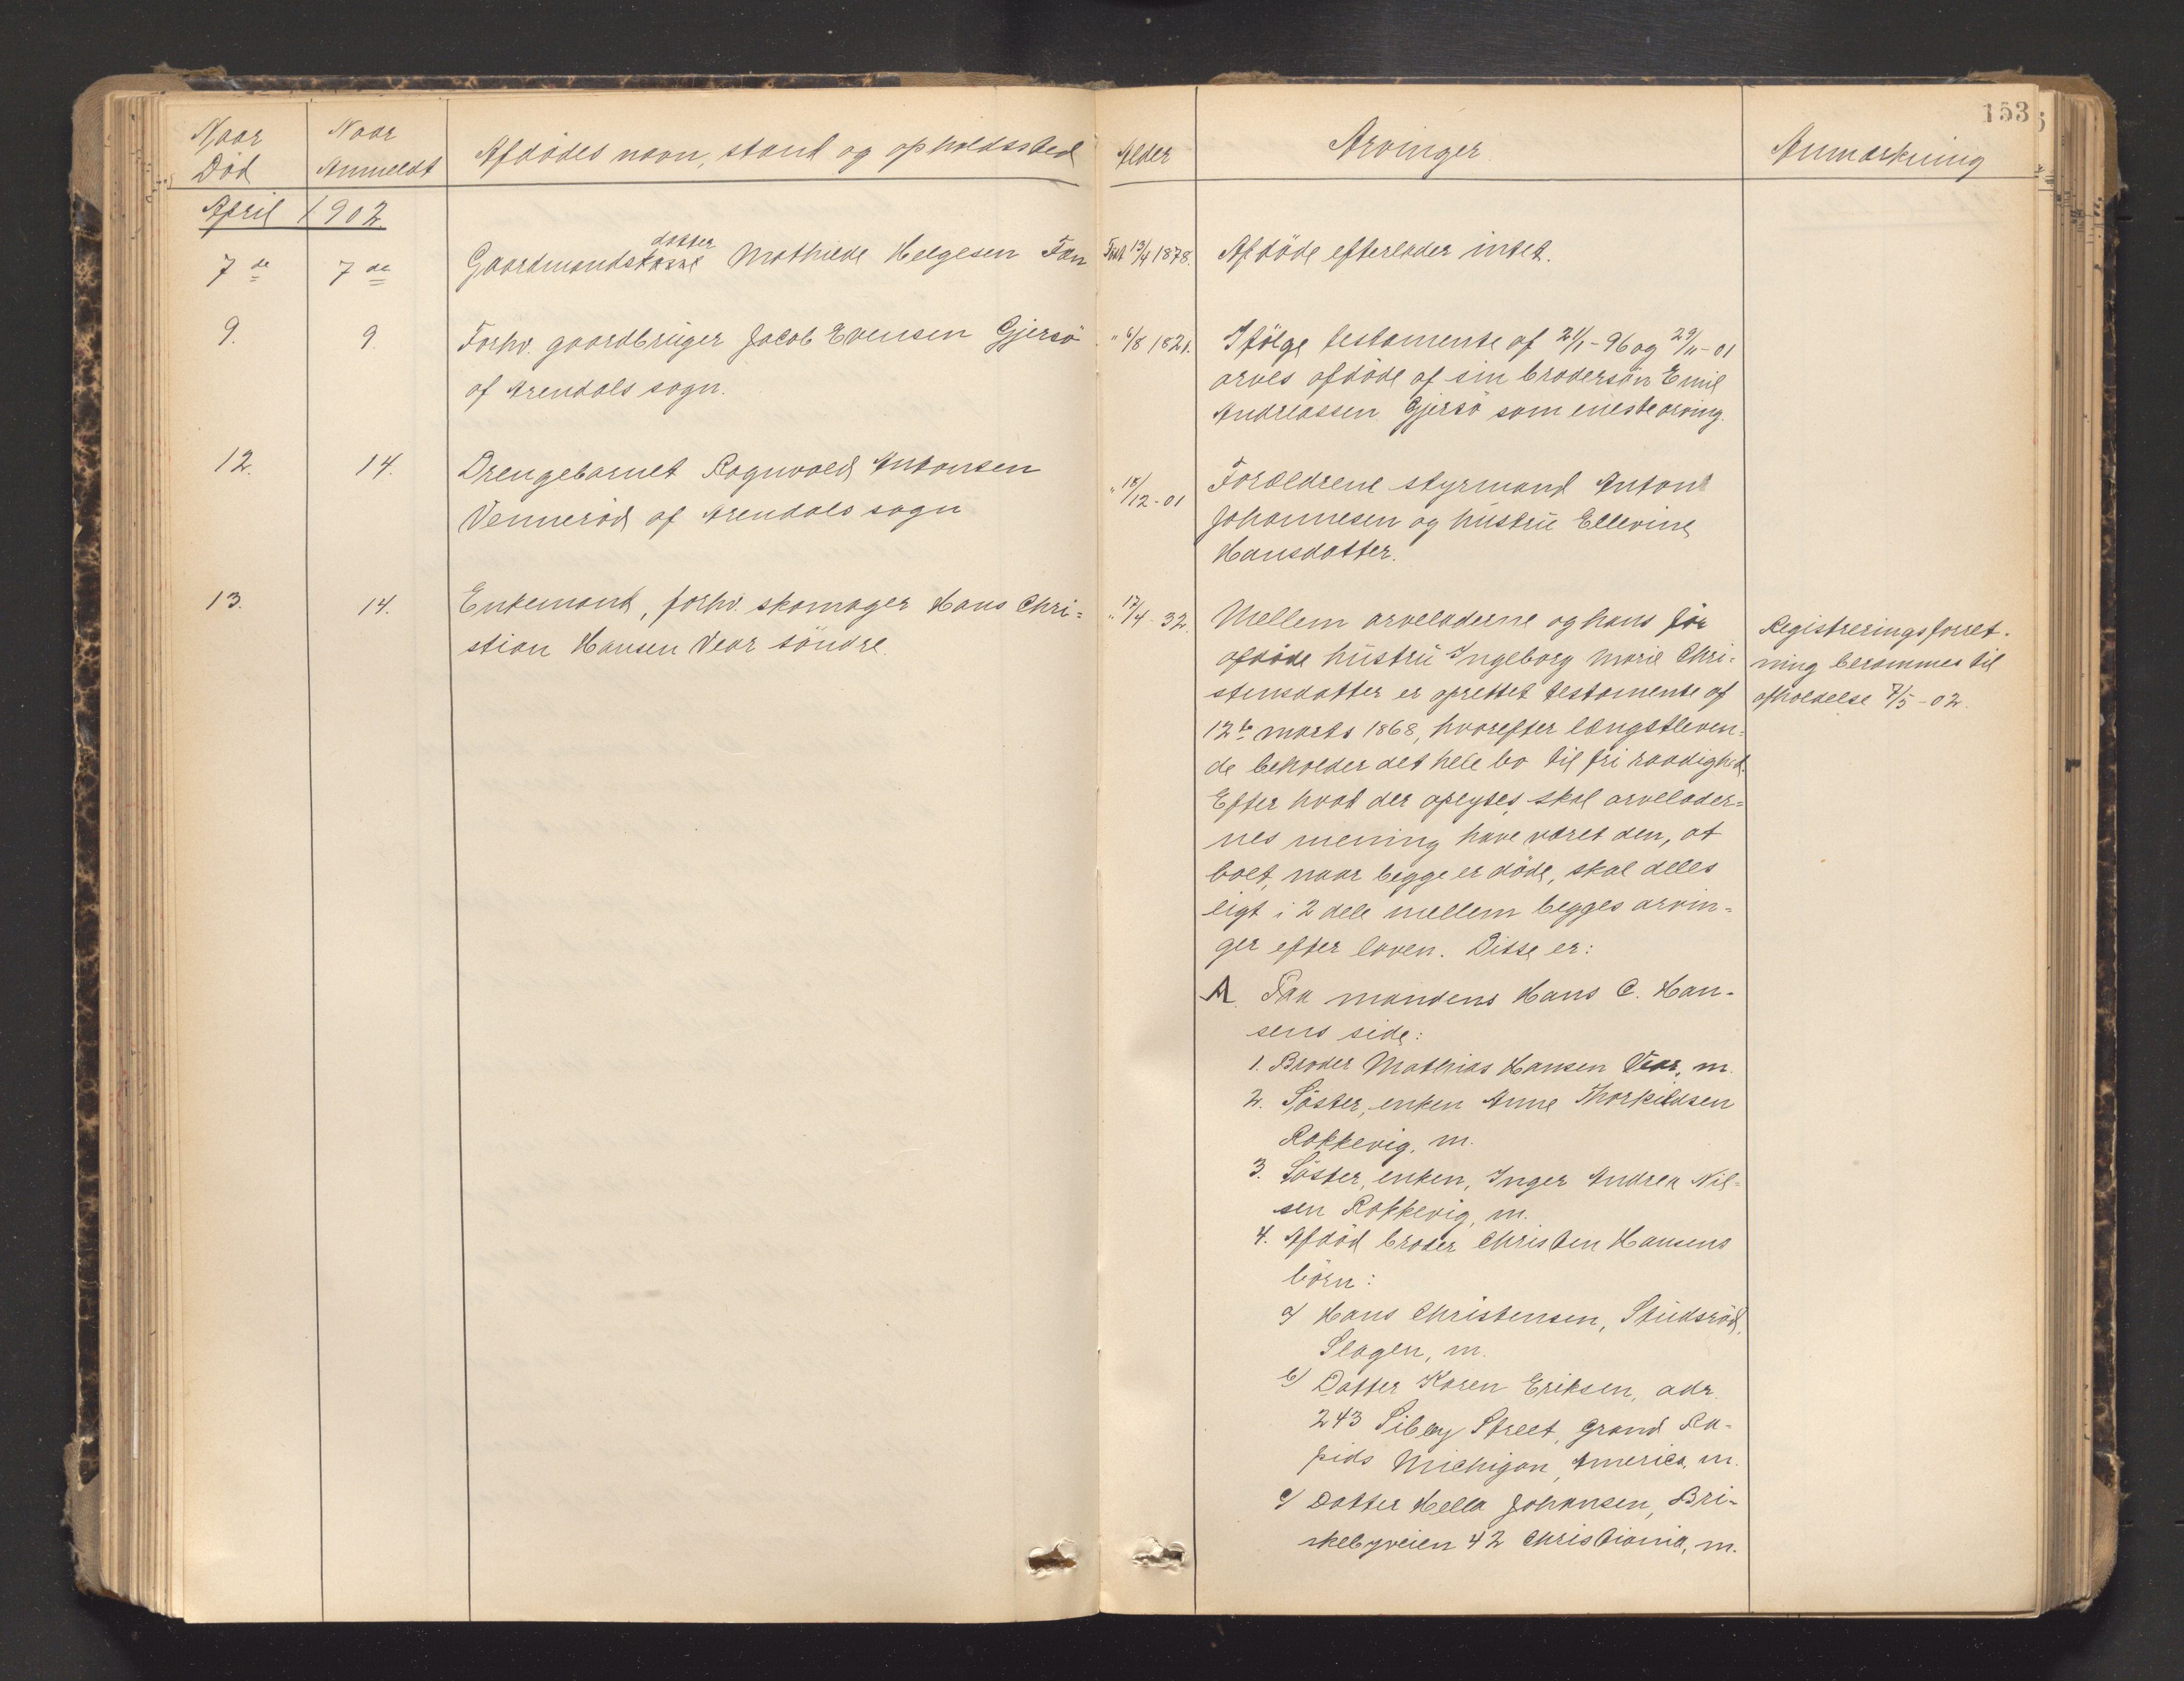 153
Naar Død
Naar Anmeldt
Afdødes navn, stand og opholdssted
Alder
Arvinger
Anmærkning
April 1902.
7de
7de
Gaardmandsdatter Mathilde Helgesen Fæn
Født 13/4 1878.
Afdöde efterlader intet.
9.
9.
Forhv. gaardbruger Jacob Evensen Gjersö
af Arendals sogn.
" 6/8 1821.
Ifölge testamente af 21/1-96 og 29/11-01
arves afdöde af sin brodersön Emil
Andreassen Gjersö som eneste arving.
12.
14.
Drengebarnet Ragnvald Antonsen
Venneröd af Arendals sogn
" 18/12-01
Forældrene styrmand Anton
Johannesen og hustru Ellevine
Hansdatter.
13.
14.
Enkemand, forhv. skomager Hans Chri=
stian Hansen Vear söndre.
" 17/4-32.
Mellem arveladerne og hans för
afdöde hustru Ingeborg Marie Chri=
stensdatter er oprettet testamente af
12te marts 1868, hvorefter længstleven=
de beholder det hele bo til fri raadighet.
Efter hvad der oplyses, skal arvelader=
nes mening have været den, at
boet, naar begge er döde, skal deles
ligt i 2 dele mellem begges arvin=
ger efter loven. Disse er:
A. Paa mandens Hans C. Han-
sens side:
1. Broder Mathias Hansen Vear, m.
2. Söster, enken Anne Thorkildsen
Rakkevig, m.
3. Söster, enken, Inger Andrea Nil=
sen Rakkevig, m.
4. Afdöd broder Christen Hansens
börn:
a/ Hans Christensen, Studsröd,
Slagen, m.
b/ Datter Karen Eriksen, adr.
243 Sibley Street, Grand Ra-
pids Michigan, America, m.
c/ Datter Hella Johansen, Bri-
skebyveien 42 Christiania, m.
Registreringsforret-
ning berammes til
afholdelse 7/5-02.